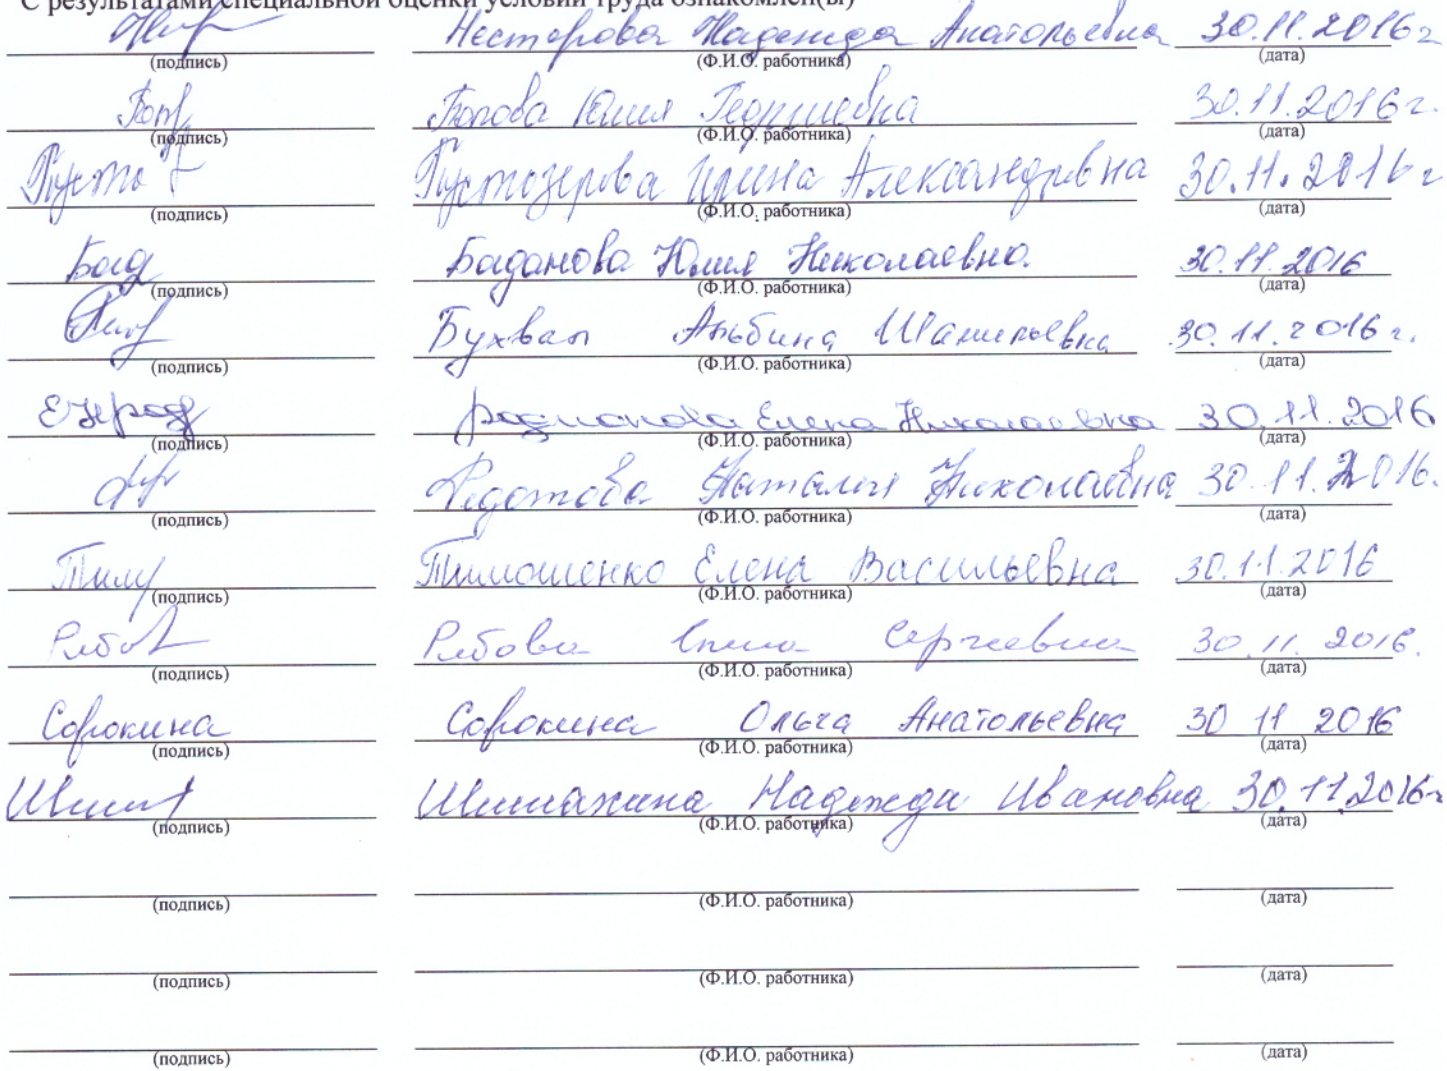 С результатами специальной оценки условий труда ознакомлен(ы)
Нестерова Надежда Анатольевна 30.11.2016г
(подпись) (Ф.И.О. работника) (дата)
Юлия Георгиевна 30.11.2016г.
(подпись) (Ф.И.О. работника) (дата)
Пустозерова Ирина Александровна 30.11.2016г
(подпись) (Ф.И.О. работника) (дата)
Баданова Юлия Николаевна 30.11.2016
(подпись) (Ф.И.О. работника) (дата)
Альбина Шамильевна 30.11.2016г.
(подпись) (Ф.И.О. работника) (дата)
Родионова Елена Николаевна 30.11.2016
(подпись) (Ф.И.О. работника) (дата)
Федотова Наталья Николаевна 30.11.2016.
(подпись) (Ф.И.О. работника) (дата)
Тимошенко Елена Васильевна 30.11.2016
(подпись) (Ф.И.О. работника) (дата)
Рябова Сергеевна 30.11.2016.
(подпись) (Ф.И.О. работника) (дата)
Сорокина Сорокина Ольга Анатольевна 30 11 2016
(подпись) (Ф.И.О. работника) (дата)
Надежда Ивановна 30.11.2016г
(подпись) (Ф.И.О. работника) (дата)
(подпись) (Ф.И.О. работника) (дата)
(подпись) (Ф.И.О. работника) (дата)
(подпись) (Ф.И.О. работника) (дата)